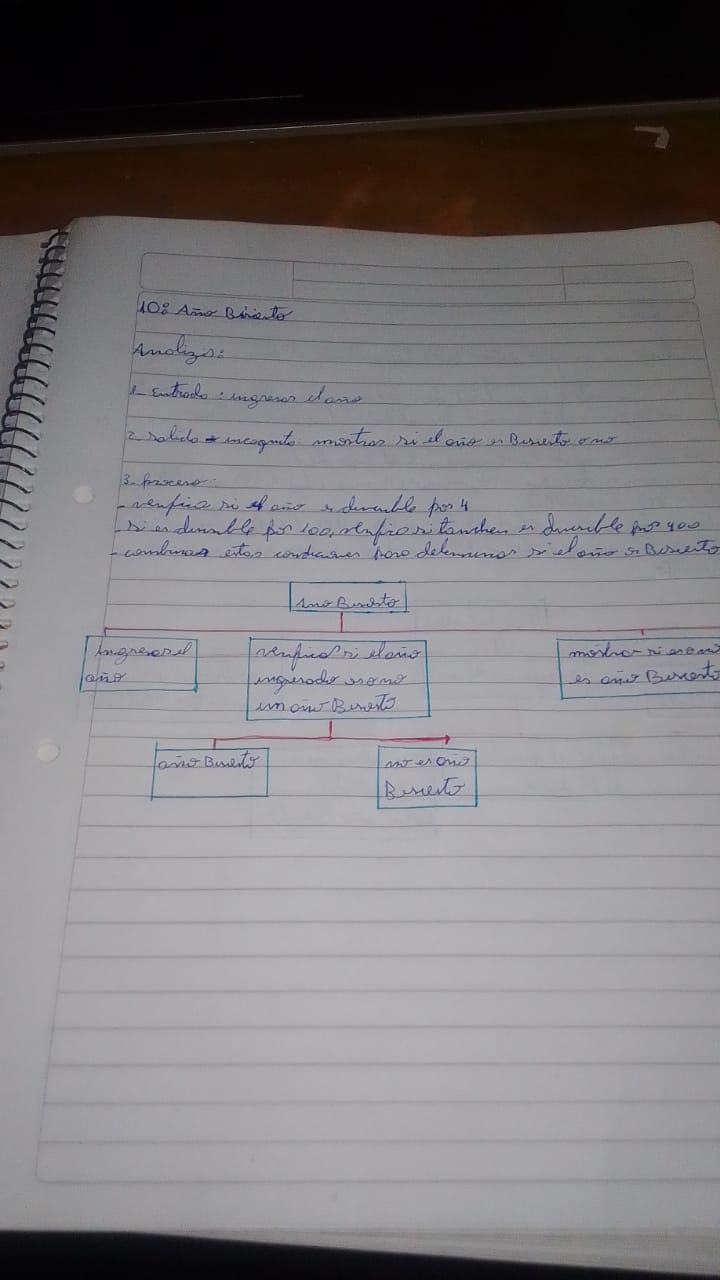 10: Año Bisiesto
Analizis:
1- Entrada: ingresar el año
2- salida incognita mostrar si el año es Bisiesto o no
3- proceso:
- verifica si el año es divisible por 4
- si es divisible por 100, verifica si tambien es divisible por 400
- combinar estas condiciones para determinar si el año es Bisiesto
Ano Bisiesto
Ingresar el
año
verificar si el año
ingresado es o no
un año Bisiesto
mostrar si es o no
es año Bisiesto
año Bisiesto
no es año
Bisiesto